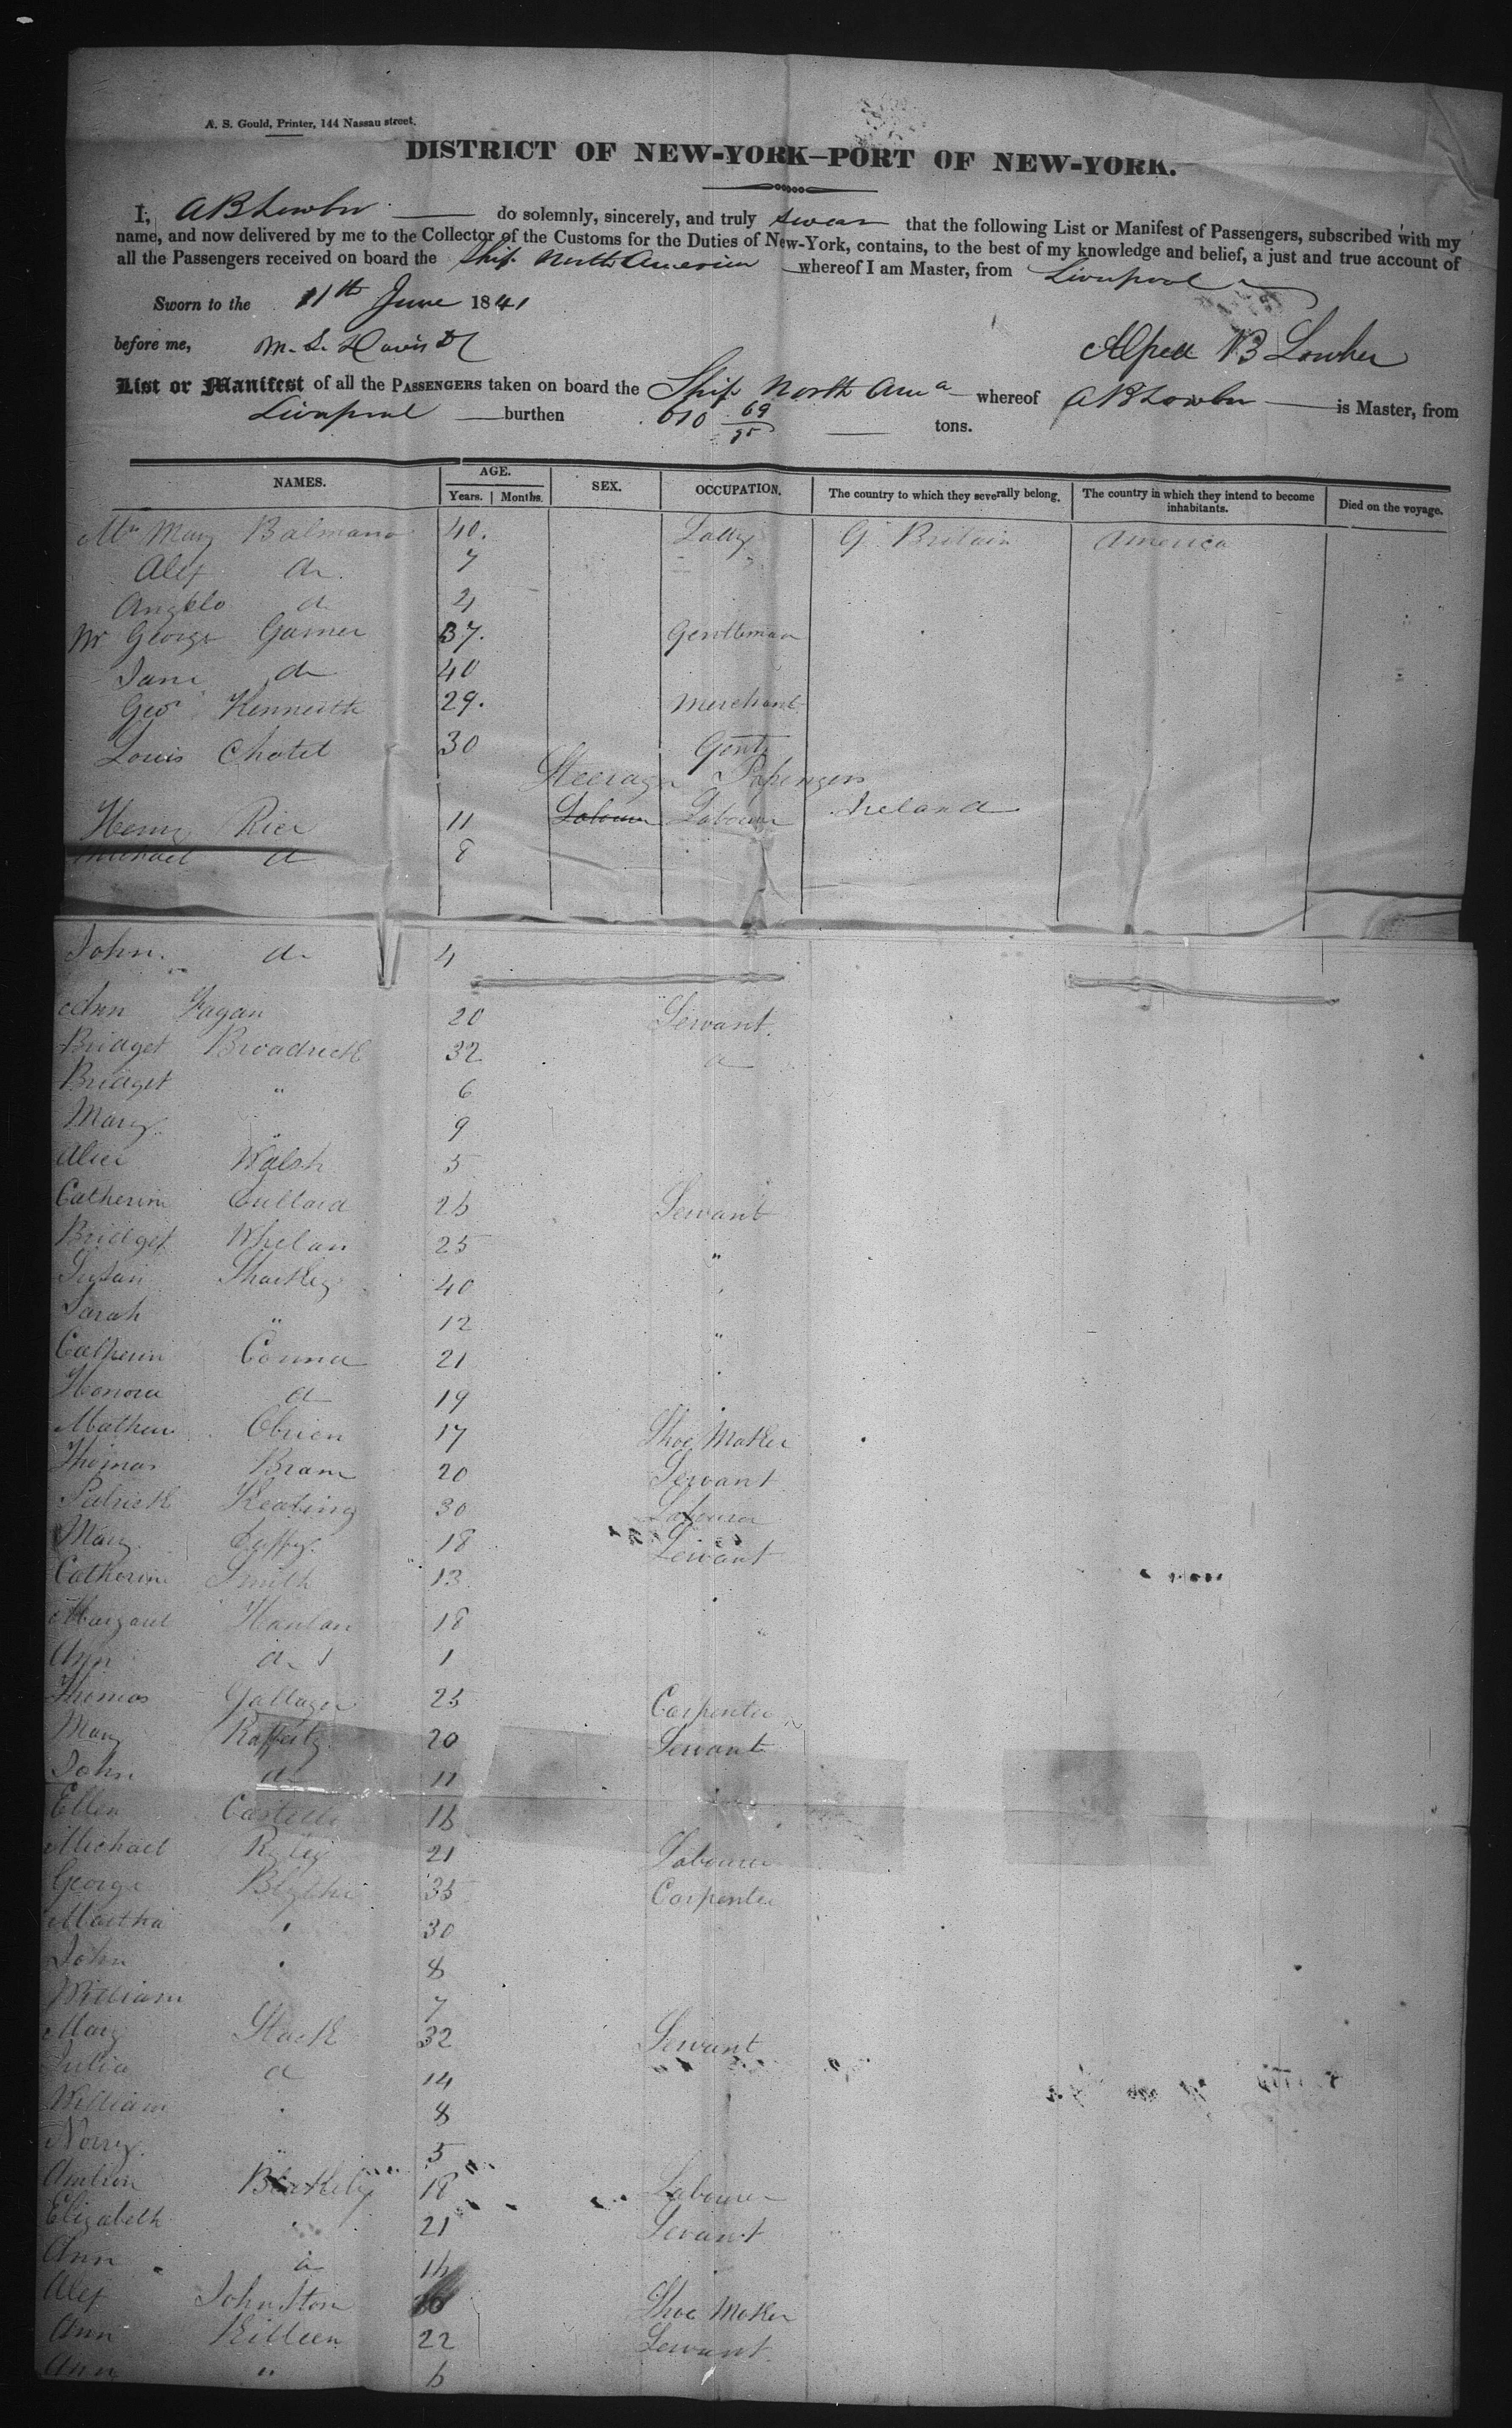 A. S. Gould, Printer, 144 Nassau street.
DISTRICT OF NEW-YORK—PORT OF NEW-YORK.
I, A B Lowber do solemnly, sincerely, and truly swear that the following List or Manifest of Passengers, subscribed with my
name, and now delivered by me to the Collector of the Customs for the Duties of New-York, contains, to the best of my knowledge and belief, a just and true account of
all the Passengers received on board the Ship North America whereof I am Master, from Liverpool
Sworn to the 11th June 1841
before me, M. L. Davis
B Lowber
List or Manifest of all the PASSENGERS taken on board the Ship North Ama whereof A B Lowber is Master, from
Liverpool burthen 610 69/95 tons.
NAMES. AGE. SEX. OCCUPATION. The country to which they severally belong. The country in which they intend to become inhabitants. Died on the voyage.
Years. Months.
Mrs Mary Balmano 40. Lady G. Britain America
Alex do 7 " "
Angelo do 4
Mr George Garner 37. Gentleman
Jane do 40
Geo Kenneith 29. Merchant
Louis Chatel 30 Gent
Steerage Passengers
Henry Rice 11 Labourer Labourer Ireland
Michael do 8
John do 4
Ann Fagan 20 Servant
Bridget Broadrick 32 do
Bridget " 6
Mary " 9
Alice Walsh 5
Catherine 26 Servant
Bridget Whelan 25 "
Susan Sharkey 40
Sarah " 12 "
Catherin Connor 21
Honora do 19
Mathew Obrien 17 Shoe Maker
Thomas 20 Servant
Patrick Keating 30 Labourer
Mary Duffy 18 Servant
Catherine Smith 13
Margaret Hanlan 18 "
Ann do 1
Thomas Gallager 25 Carpenter
Mary Rafferty 20 Servant
John do 11
Ellen Castello 16
Michael Reiley 21 Labourer
George Blythe 35 Carpenter
Martha " 30
John " 8
William 7
Mary Stack 32 Servant
Julia do 14
William " 8
Norry " 5
Blakely 18 Labourer
Elizabeth " 21 Servant
Ann do 16
Alex Johnston Shoe Maker
Ann Killeen 22 Servant
Ann " 6